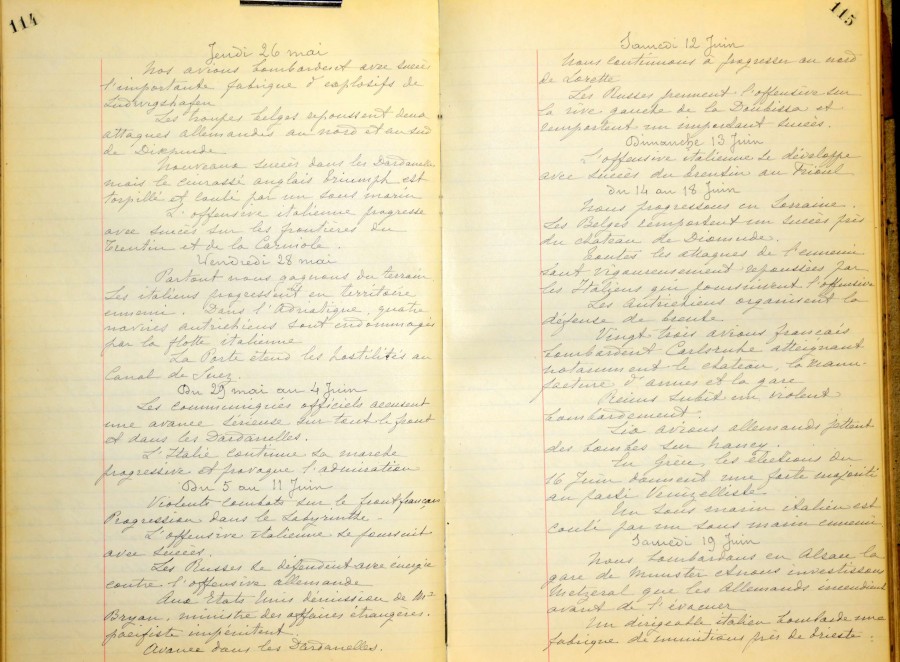 114
Jeudi 26 mai
Nos avions bombardent avec succès
l'importante fabrique d'explosifs de
Ludwigshafen
Les troupes belges repoussent deux
attaques allemandes au nord et au sud
de Dixmude
Nouveaux succès dans les Dardanelles
mais le cuirassé anglais Triumph est
torpillé et coulé par un sous marin
L'offensive italienne progresse
avec succès sur les frontières du
Trentin et de la Carniole.
Vendredi 28 mai
Partout nous gagnons du terrain
Les italiens progressent en territoire
ennemi. Dans l'Adriatique, quatre
navires autrichiens sont endommagés
par la flotte italienne
La Porte étend les hostilités au
Canal de Suez.
Du 29 mai au 4 Juin
Les communiqués officiels accusent
une avance sérieuse sur tout le front
et dans les Dardanelles.
L'Italie continue sa marche
progressive et provoque l'admiration
Du 5 au 11 Juin
Violents combats sur le front français
Progression dans le Labyrinthe.
L'offensive italienne se poursuit
avec succès.
Les Russes se défendent avec énergie
contre l'offensive allemande
Aux Etats Unis démission de Mr
Bryan, ministre des affaires étrangères.
pacifiste impénitent.
Avance dans les Dardanelles.
115
Samedi 12 Juin
Nous continuons à progresser au nord
de Lorette
Les Russes prennent l'offensive sur
la rive gauche de la Doubissa et
remportent un important succès.
Dimanche 13 Juin
L'offensive italienne se développe
avec succès du Trentin au Frioul
Du 14 au 18 Juin
Nous progressons en Lorraine.
Les Belges remportent un succès près
du château de Dixmude.
Toutes les attaques de l'ennemi
sont vigoureusement repoussées par
les Italiens qui poursuivent l'offensive
Les Autrichiens organisent la
défense de Trente.
Vingt trois avions français
bombardent Carlsruhe atteignant
notamment le château, la manu-
facture d'armes et la gare
Reims subit un violent
bombardement.
Six avions allemands jettent
des bombes sur Nancy.
En Grèce, les élections du
16 Juin donnent une forte majorité
au parti Venizelliste
Un sous marin italien est
coulé par un sous marin ennemi
Samedi 19 Juin
Nous bombardons en Alsace la
gare de Munster et nous investissons
Metzeral que les allemands incendient
avant de l'évacuer
Un dirigeable italien bombarde une
fabrique de munitions près de Trieste.